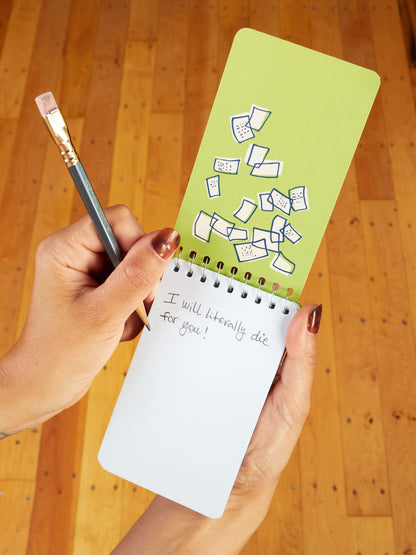 I will literally die
for you!